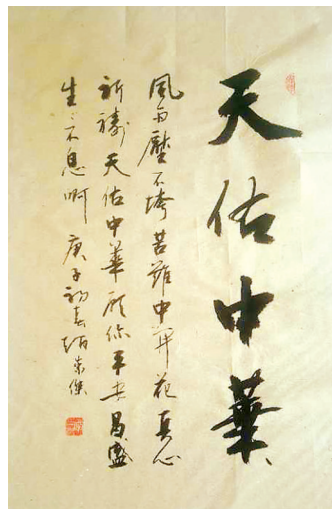 天佑中華
風雨壓不垮苦難中開花真心
祈禱天佑中華願你平安昌盛
生々不息啊 庚子初春